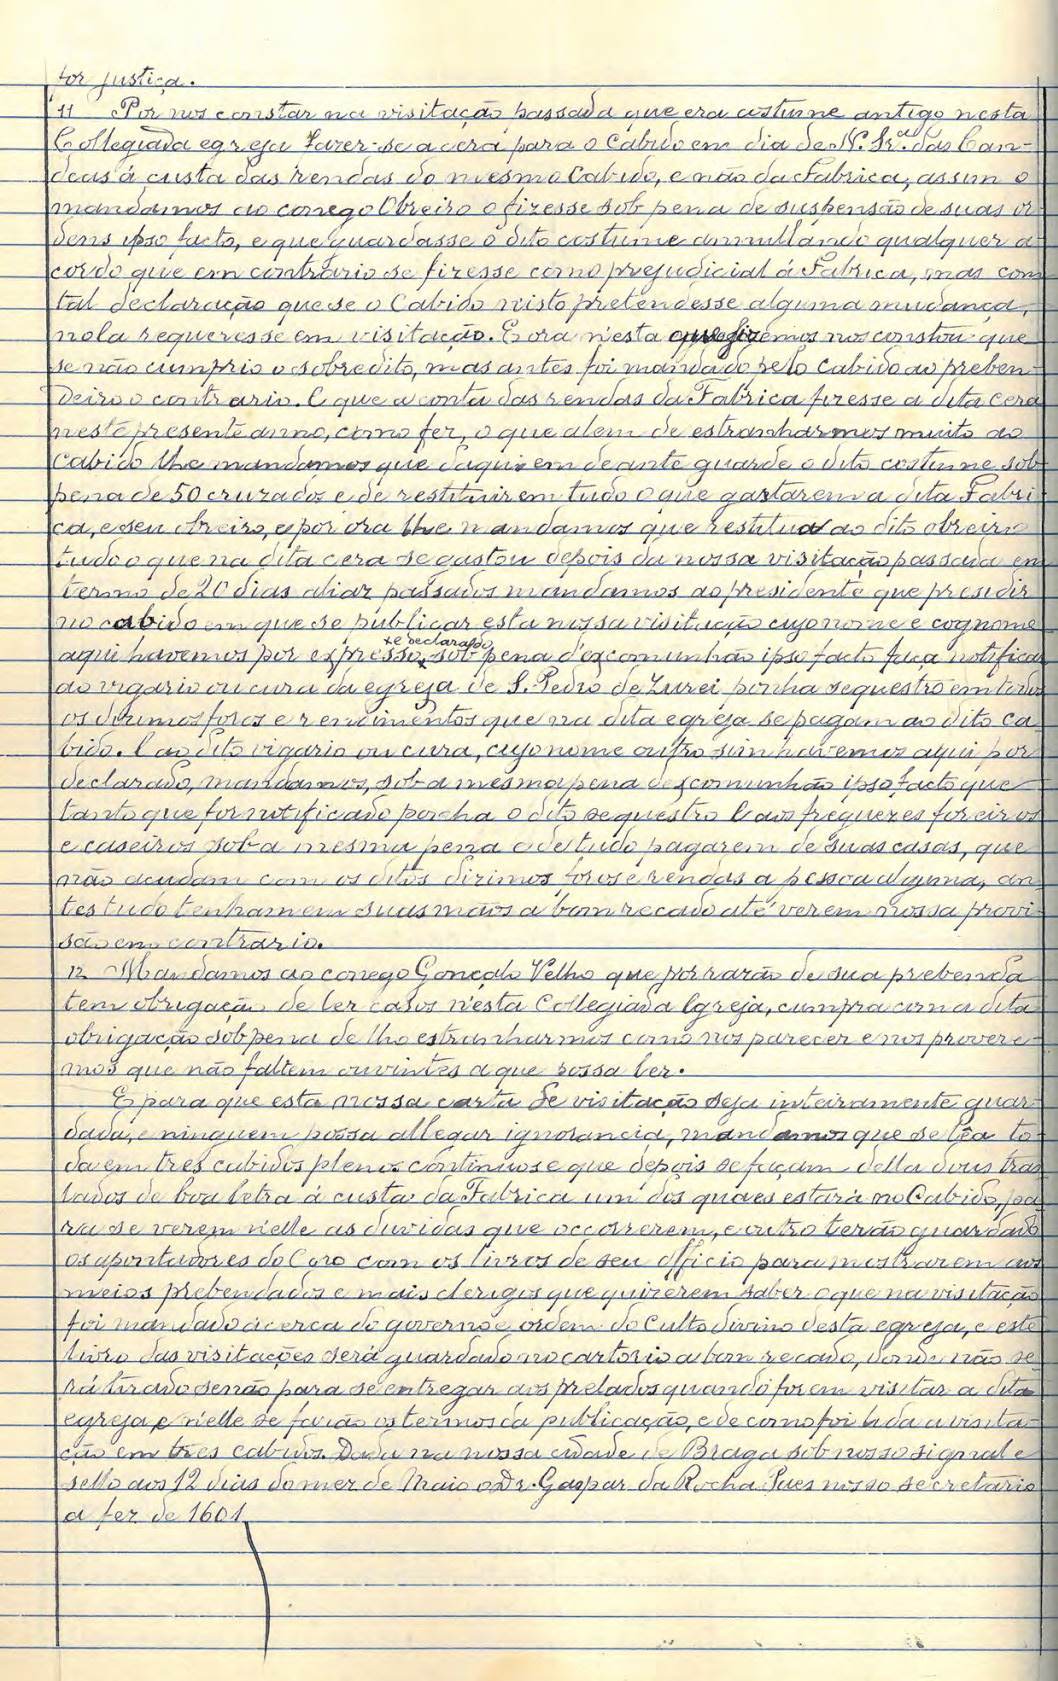 por justiça.
11 Por nos constar na visitação passada que era costume antigo nesta
Collegiada egreja fazer-se a cera para o Cabido em dia de N. Sr.ª das Can-
deas á custa das rendas do mesmo Cabido, e não da Fabrica, assim o
mandamos ao conego Obreiro o fizesse sob pena de suspensão de suas or
dens ipso facto, e que guardasse o dito costume annullando qualquer a-
cordo que em contrario se fizesse como prejudicial á Fabrica, mas com
tal declaração que se o Cabido n'isto pretendesse alguma mudança,
nola requeresse em visitação. E ora n'esta que fizemos nos constou que
se não cumprio o sobredito, mas antes foi mandado pelo Cabido ao preben-
deiro o contrario. E que a conta das rendas da Fabrica fizesse a dita cera
neste presente anno, como fez, o que alem de estranharmos muito ao
Cabido lhe mandamos que daqui em deante guarde o dito costume sob
pena de 50 cruzados e de restituirem tudo o que gastarem a dita Fabri
ca, e seu obreiro, e por ora lhe mandamos que restitua ao dito obreiro
tudo o que na dita cera se gastou depois da nossa visitação passada em
termo de 20 dias aliaz passados mandamos ao presidente que presidir
no cabido em que se publicar esta nossa visitação cujo nome e cognome
x e declarado
aqui havemos por expresso, x sob pena d'excomunhão ipso facto faça notificar
ao vigario ou cura da egreja de S. Pedro de Zurei ponha sequestro em todos
os dizimos foros e rendimentos que na dita egreja se pagam ao dito ca
bido. E ao dito vigario ou cura, cujo nome outro sim havemos aqui por
declarado, mandamos, sob a mesma pena de escomunhão ipso facto que
tanto que for notificado ponha o dito sequestro e aos freguezes foreiros
e caseiros sob a mesma pena e de tudo pagarem de suas casas, que
não acudam com os ditos dizimos foros e rendas a pessoa alguma, an
tes tudo tenham em suas mãos a bom recado até verem nossa provi
são em contrario.
12 Mandamos ao conego Gonçalo Velho que por razão de sua prebenda
tem obrigação de ler casos n'esta Collegiada Egreja, cumpra com a dita
obrigação sob pena de lho estranharmos como nos parecer e nos provere-
mos que não faltem ouvintes a que possa ler.
E para que esta nossa carta de visitação seja inteiramente guar
dada, e ninguem possa allegar ignorancia, mandamos que se lêa to
da em tres cabidos plenos continuos e que depois se façam della dous tras
lados de boa letra á custa da Fabrica um dos quaes estará no Cabido, pa
ra se verem n'elle as duvidas que occorrerem, e outro terão guardado
os apontadores do Coro com os livros de seu officio para mostrarem aos
meios prebendados e mais clerigos que quizerem saber o que na visitação
foi mandado ácerca do governo e ordem do Culto divino desta egreja, e este
livro das visitações será guardado no cartorio a bom recado, donde não se
rá tirado senão para se entregar aos prelados quando forem visitar a dita
egreja e n'elle se farão os termos da publicação, e de como foi lida a visita-
ção em tres cabidos. Dada na nossa cidade de Braga sob nosso signal e
sello aos 12 dias do mez de Maio o Dr. Gaspar da Rocha Paes nosso secretario
a fez de 1601